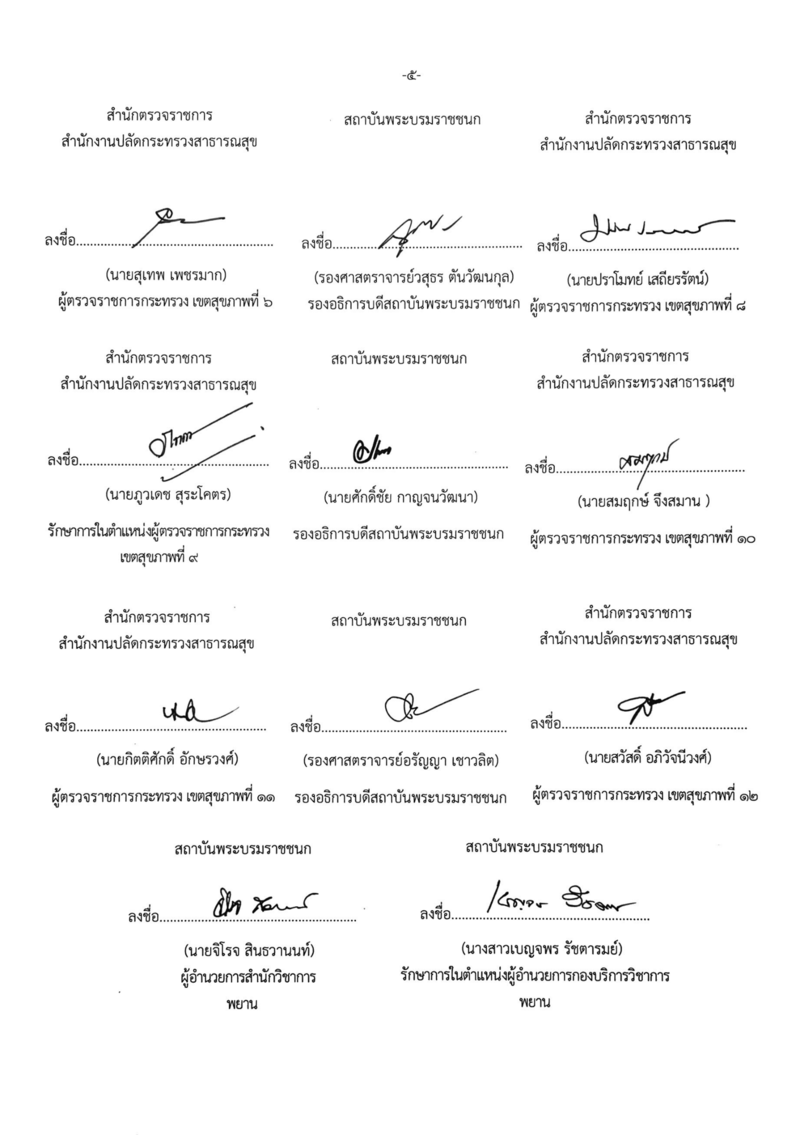 -๕-
สำนักตรวจราชการ
สำนักงานปลัดกระทรวงสาธารณสุข
สถาบันพระบรมราชชนก
สำนักตรวจราชการ
สำนักงานปลัดกระทรวงสาธารณสุข
ลงชื่อ
(นายสุเทพ เพชรมาก)
ผู้ตรวจราชการกระทรวง เขตสุขภาพที่ ๖
ลงชื่อ
(รองศาสตราจารย์วสุธร ตันวัฒนกุล)
รองอธิการบดีสถาบันพระบรมราชชนก
ลงชื่อ
(นายปราโมทย์ เสถียรรัตน์)
ผู้ตรวจราชการกระทรวง เขตสุขภาพที่ ๘
สำนักตรวจราชการ
สำนักงานปลัดกระทรวงสาธารณสุข
สถาบันพระบรมราชชนก
สำนักตรวจราชการ
สำนักงานปลัดกระทรวงสาธารณสุข
ลงชื่อ
(นายภูวเดช สุระโคตร)
รักษาการในตำแหน่งผู้ตรวจราชการกระทรวง
เขตสุขภาพที่ ๙
ลงชื่อ
(นายศักดิ์ชัย กาญจนวัฒนา)
รองอธิการบดีสถาบันพระบรมราชชนก
ลงชื่อ
(นายสมฤกษ์ จึงสมาน )
ผู้ตรวจราชการกระทรวง เขตสุขภาพที่ ๑๐
สำนักตรวจราชการ
สำนักงานปลัดกระทรวงสาธารณสุข
สถาบันพระบรมราชชนก
สำนักตรวจราชการ
สำนักงานปลัดกระทรวงสาธารณสุข
ลงชื่อ
(นายกิตติศักดิ์ อักษรวงศ์)
ผู้ตรวจราชการกระทรวง เขตสุขภาพที่ ๑๑
ลงชื่อ
(รองศาสตราจารย์อรัญญา เชาวลิต)
รองอธิการบดีสถาบันพระบรมราชชนก
ลงชื่อ
(นายสวัสดิ์ อภิวัจนีวงศ์)
ผู้ตรวจราชการกระทรวง เขตสุขภาพที่ ๑๒
สถาบันพระบรมราชชนก
ลงชื่อ
(นายจิโรจ สินธวานนท์)
ผู้อำนวยการสำนักวิชาการ
พยาน
สถาบันพระบรมราชชนก
ลงชื่อ
(นางสาวเบญจพร รัชตารมย์)
รักษาการในตำแหน่งผู้อำนวยการกองบริการวิชาการ
พยาน